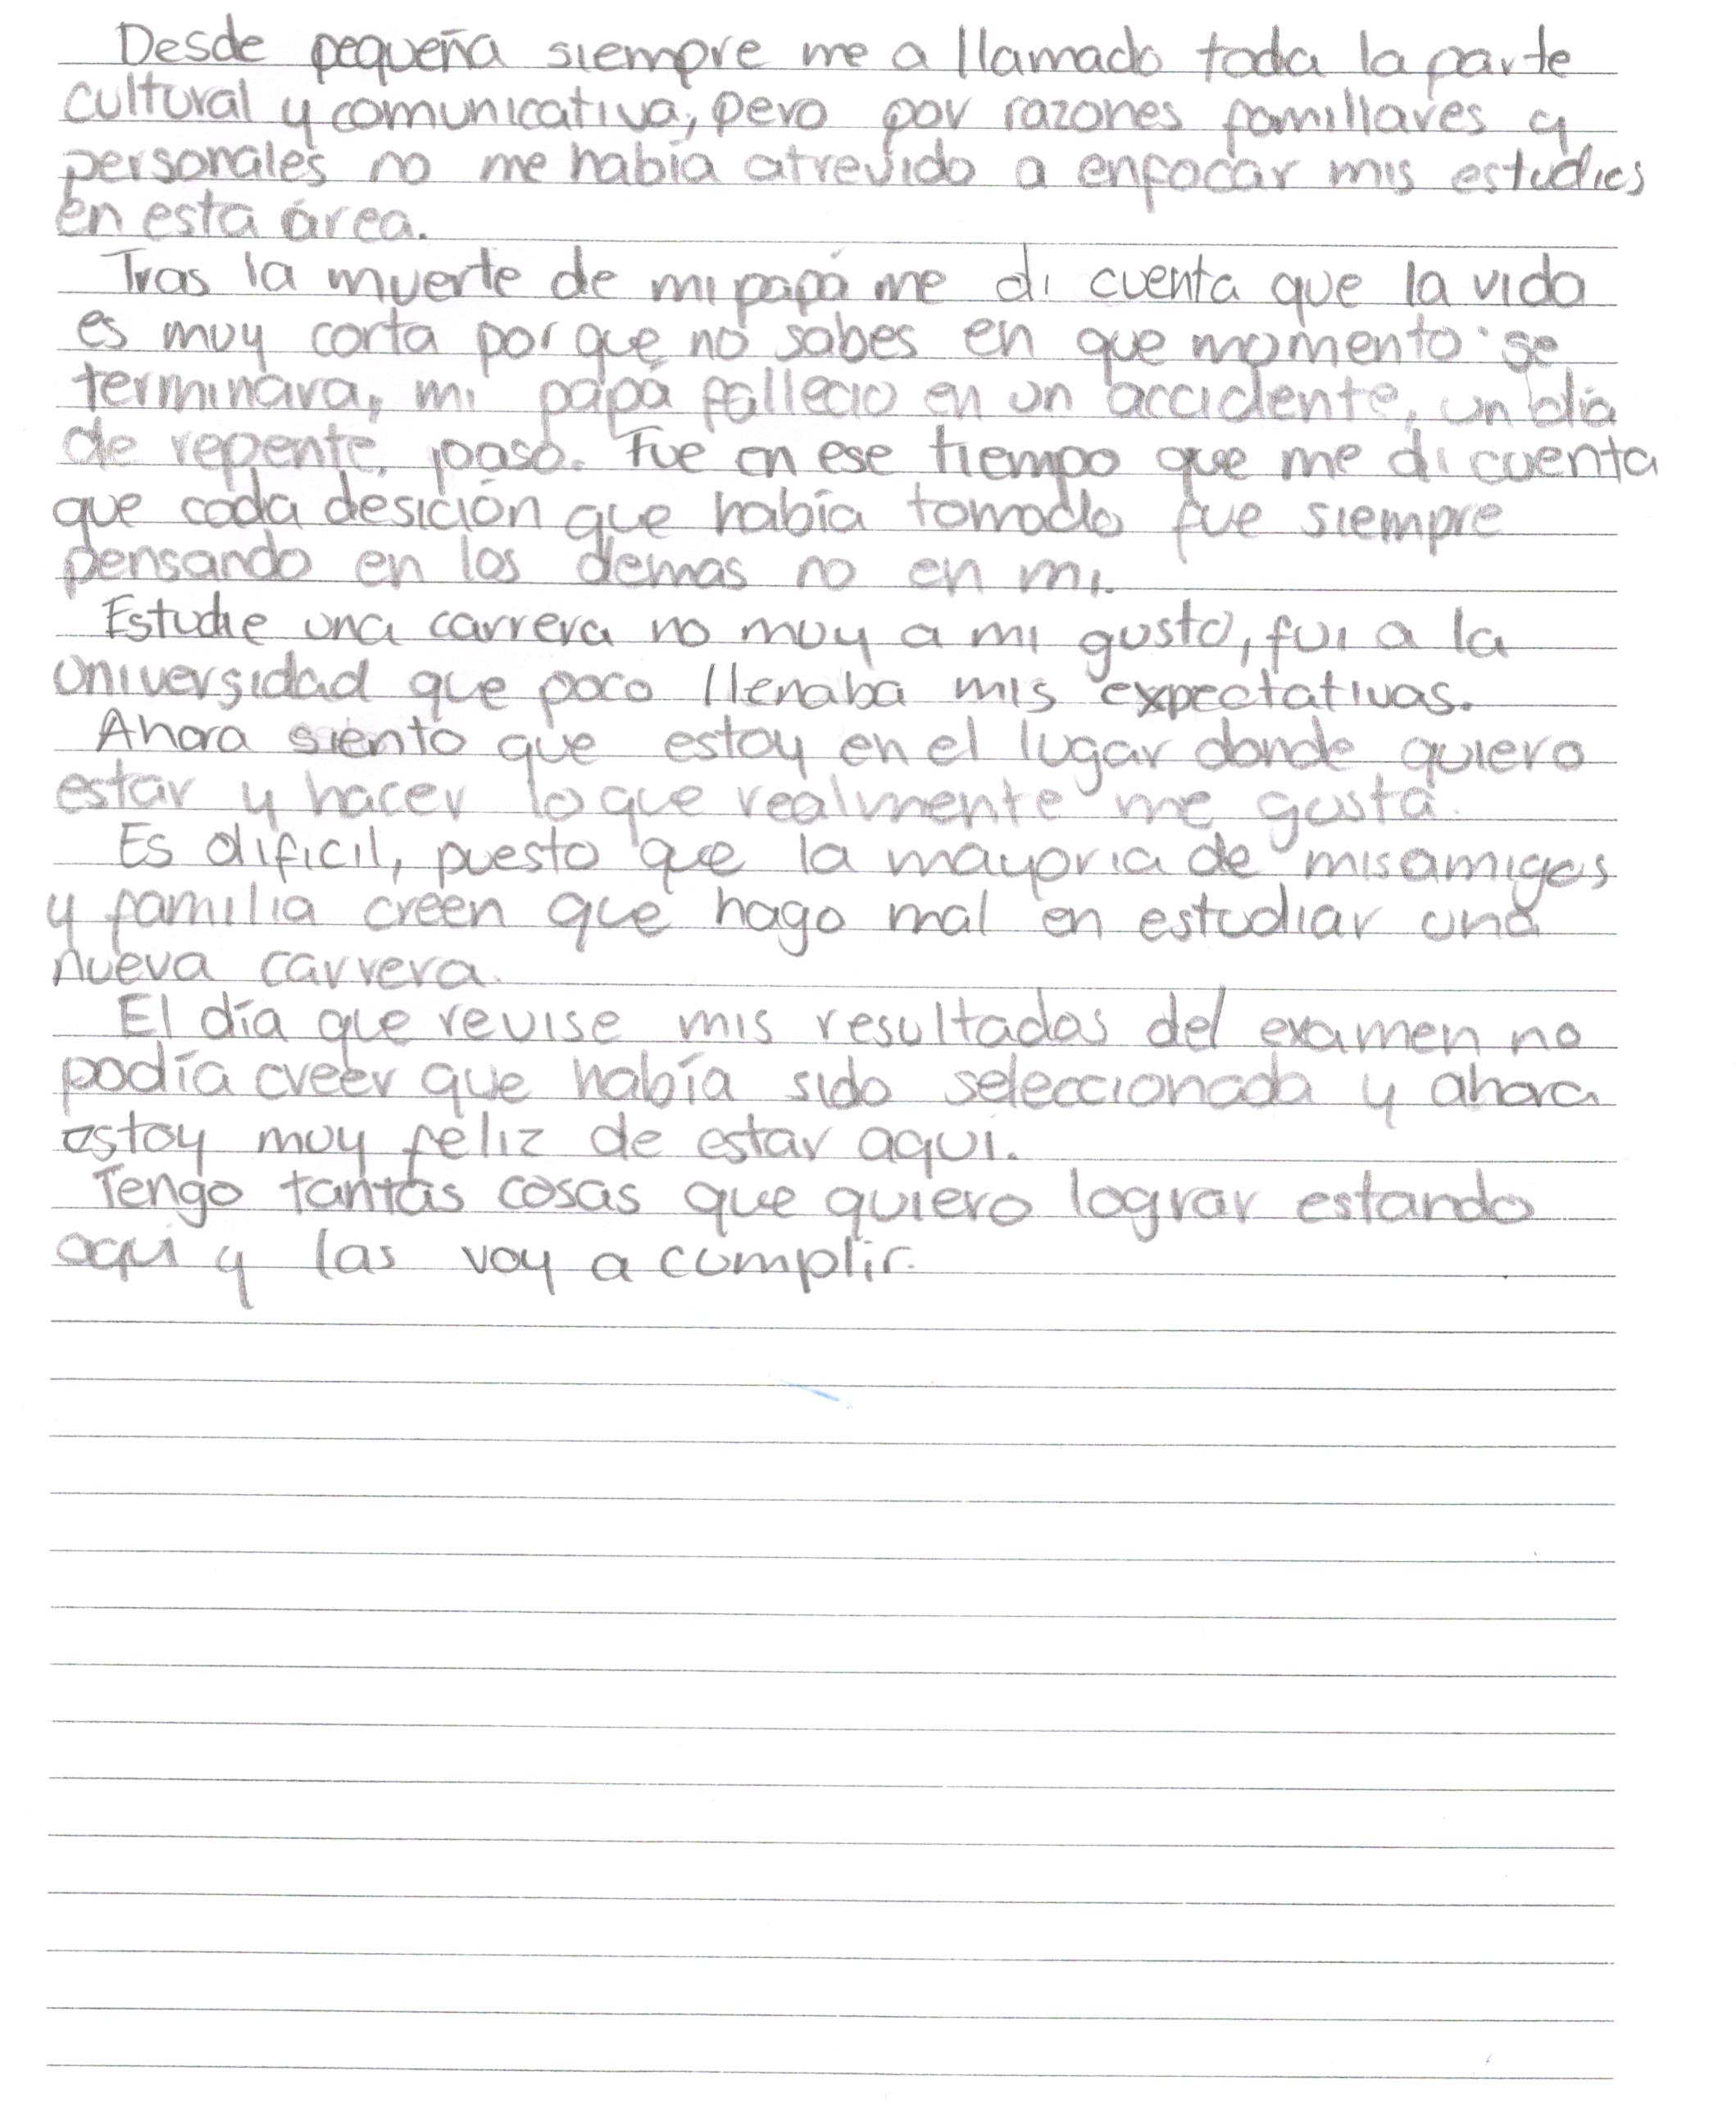 Desde pequeña siempre me a llamado toda la parte
cultural y comunicativa, pero por razones famillares y
personales no me había atrevido a enfocar mis estudios
en esta área.
Tras la muerte de mi papá me di cuenta que la vida
es muy corta porque no sabes en que momento se
terminara, mi papá fallecio en un accidente, un día
de repente, paso. Fue en ese tiempo que me di cuenta
que cada desición que había tomado fue siempre
pensando en los demas no en mi.
Estudie una carrera no muy a mi gusto, fui a la
universidad que poco llenaba mis expectativas.
Ahora siento que estoy en el lugar donde quiero
estar y hacer lo que realmente me gusta.
Es dificil, puesto que la mayoria de mis amigos
y familia creen que hago mal en estudiar una
nueva carrera.
El día que revise mis resultados del examen no
podía creer que había sido seleccionada y ahora
estoy muy feliz de estar aqui.
Tengo tantas cosas que quiero lograr estando
aqui y las voy a cumplir.